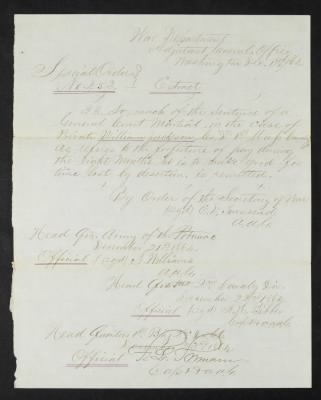 War Department
Adjutant General's Office
Washington Dec. 1864
Special Orders
No. 452
Extract
So much of the Sentence of a
General Court Martial, in the case of
Private William Jackson Co. 1st Mass. Cavalry
as refers to the forfeiture of pay during
the eight months he is to make good for
time lost by desertion is remitted.
By Order of the Secretary of War
sigd E.D. Townsend
A.A.G.
Head Qrs Army of the Potomac
December 21st 1864
Official sigd S. Williams
A.A.G.
Head Qrs 2nd Cavalry Div
December 22nd 1864
Official sigd
Capt & AAG
Head Quarters 1st Brig
1864
Official
Capt & AAG